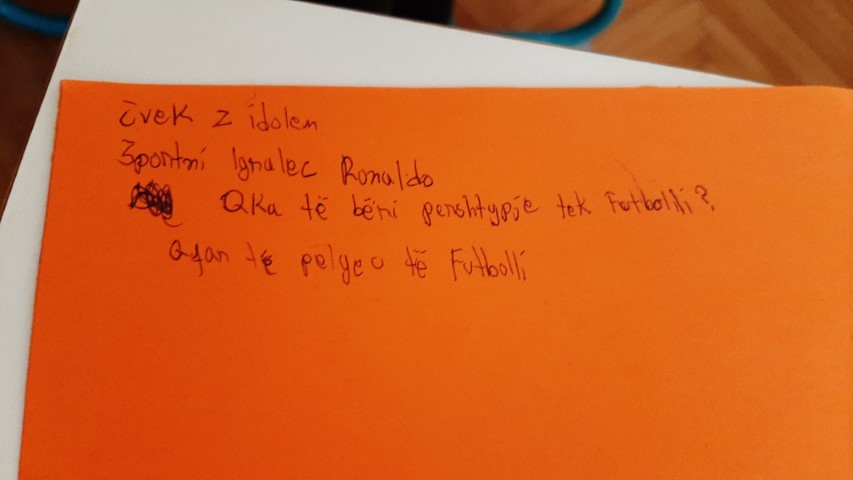 čvek z idolem
Športni Igralec Ronaldo
Qka të bëri pershtypje tek Futbolli?
Qfan të pelqeu të Futbolli